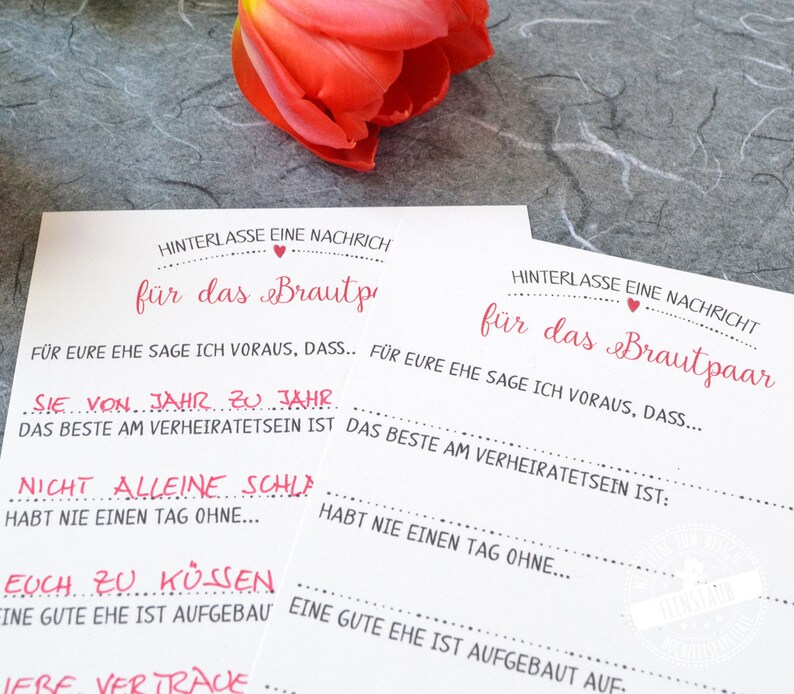 HINTERLASSE EINE NACHRICHT
für das Brautpa
FÜR EURE EHE SAGE ICH VORAUS, DASS...
SIE VON JAHR ZU JAHR
DAS BESTE AM VERHEIRATETSEIN IST
NICHT ALLEINE SCHLA
HABT NIE EINEN TAG OHNE...
EUCH ZU KÜSSEN
EINE GUTE EHE IST AUFGEBAUT
IEBE, VERTRAUE
HINTERLASSE EINE NACHRICHT
für das Brautpaar
FÜR EURE EHE SAGE ICH VORAUS, DASS...
DAS BESTE AM VERHEIRATETSEIN IST:
HABT NIE EINEN TAG OHNE...
EINE GUTE EHE IST AUFGEBAUT AUF:
FEENSTAUB